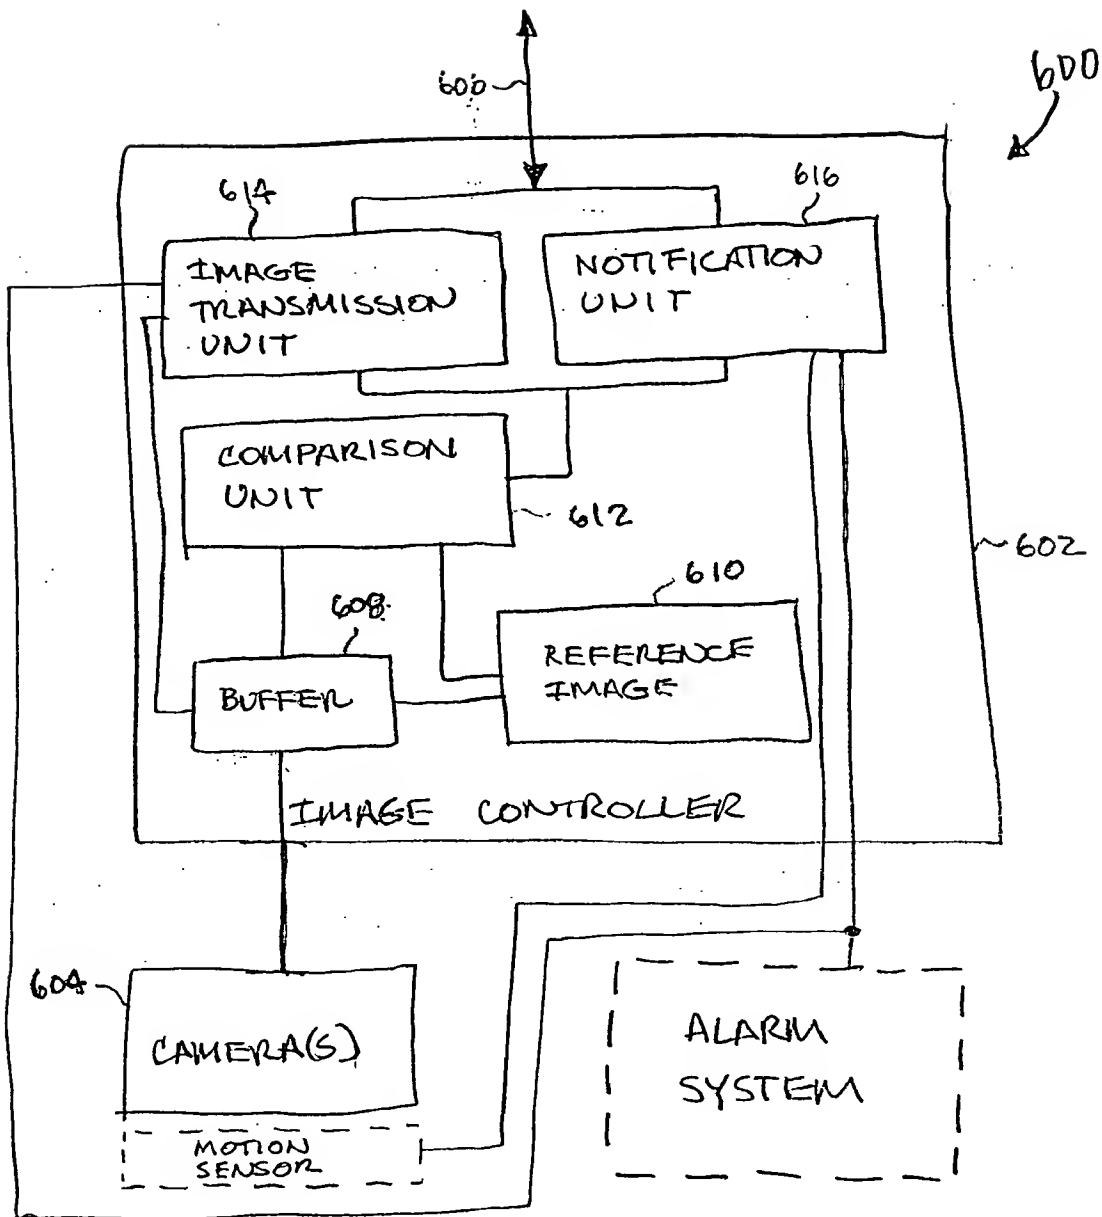 606
600
614
616
IMAGE
TRANSMISSION
UNIT
NOTIFICATION
UNIT
COMPARISON
UNIT
612
602
610
608
REFERENCE
IMAGE
BUFFER
IMAGE CONTROLLER
604
CAMERA(S)
ALARM
SYSTEM
MOTION
SENSOR